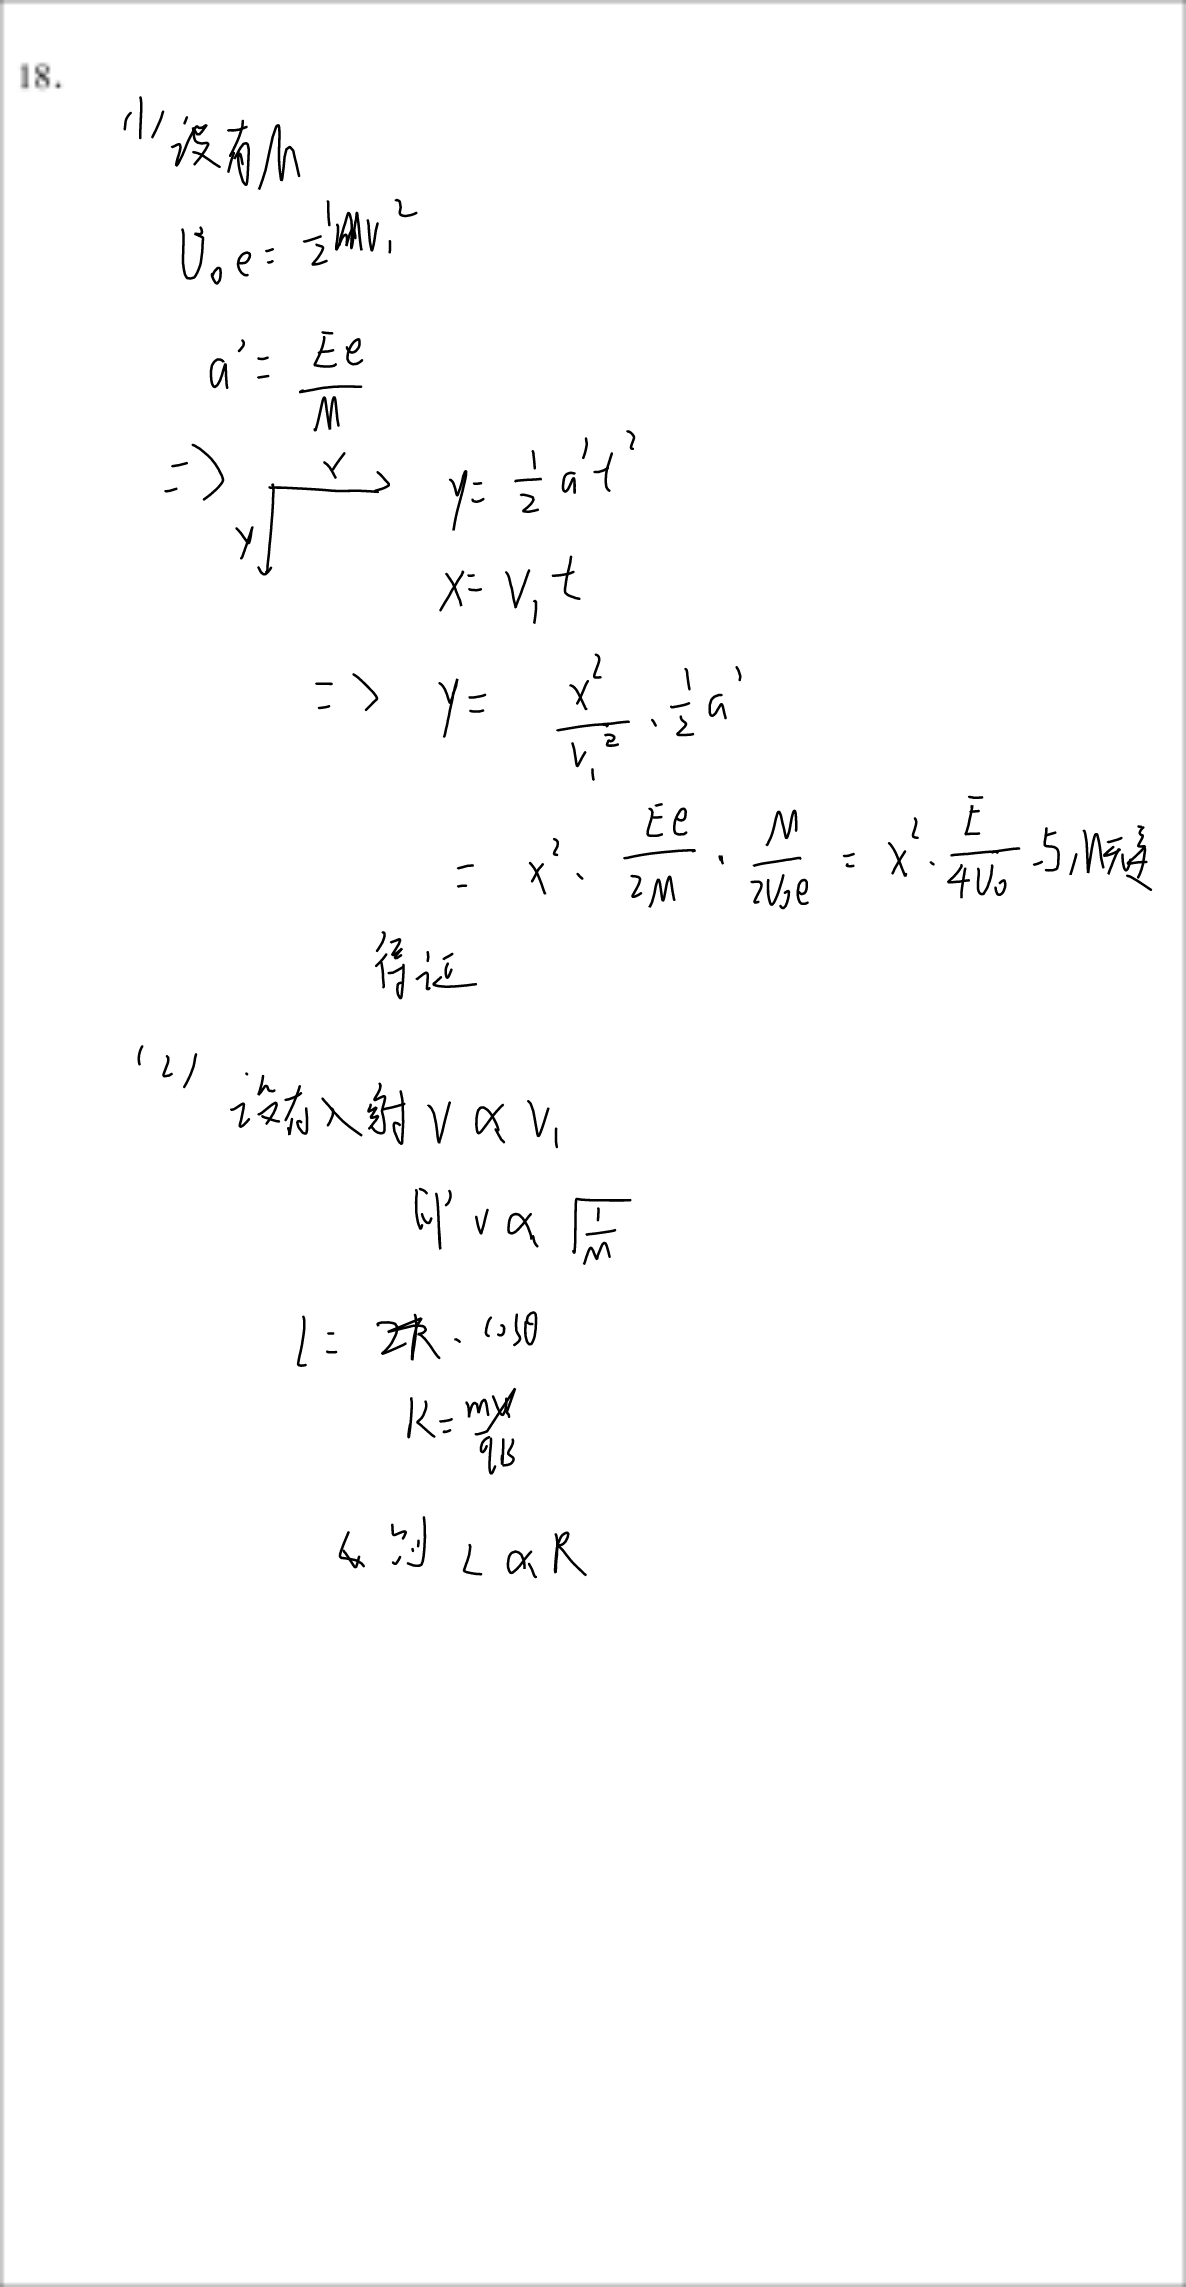 18.
(1) 设有M
U₀e = ½Mv₁²
a' = Ee/M
=> x y y = ½a't²
x = v₁t
=> y = x²/v₁² · ½a'
= x² · Ee/2M · M/2U₀e = x² · E/4U₀ 与M无关
得证
(2) 设有入射 v ∝ v₁
即 v ∝ √(1/M)
l = 2R · cosθ
R = mv/qB
L ∝ R